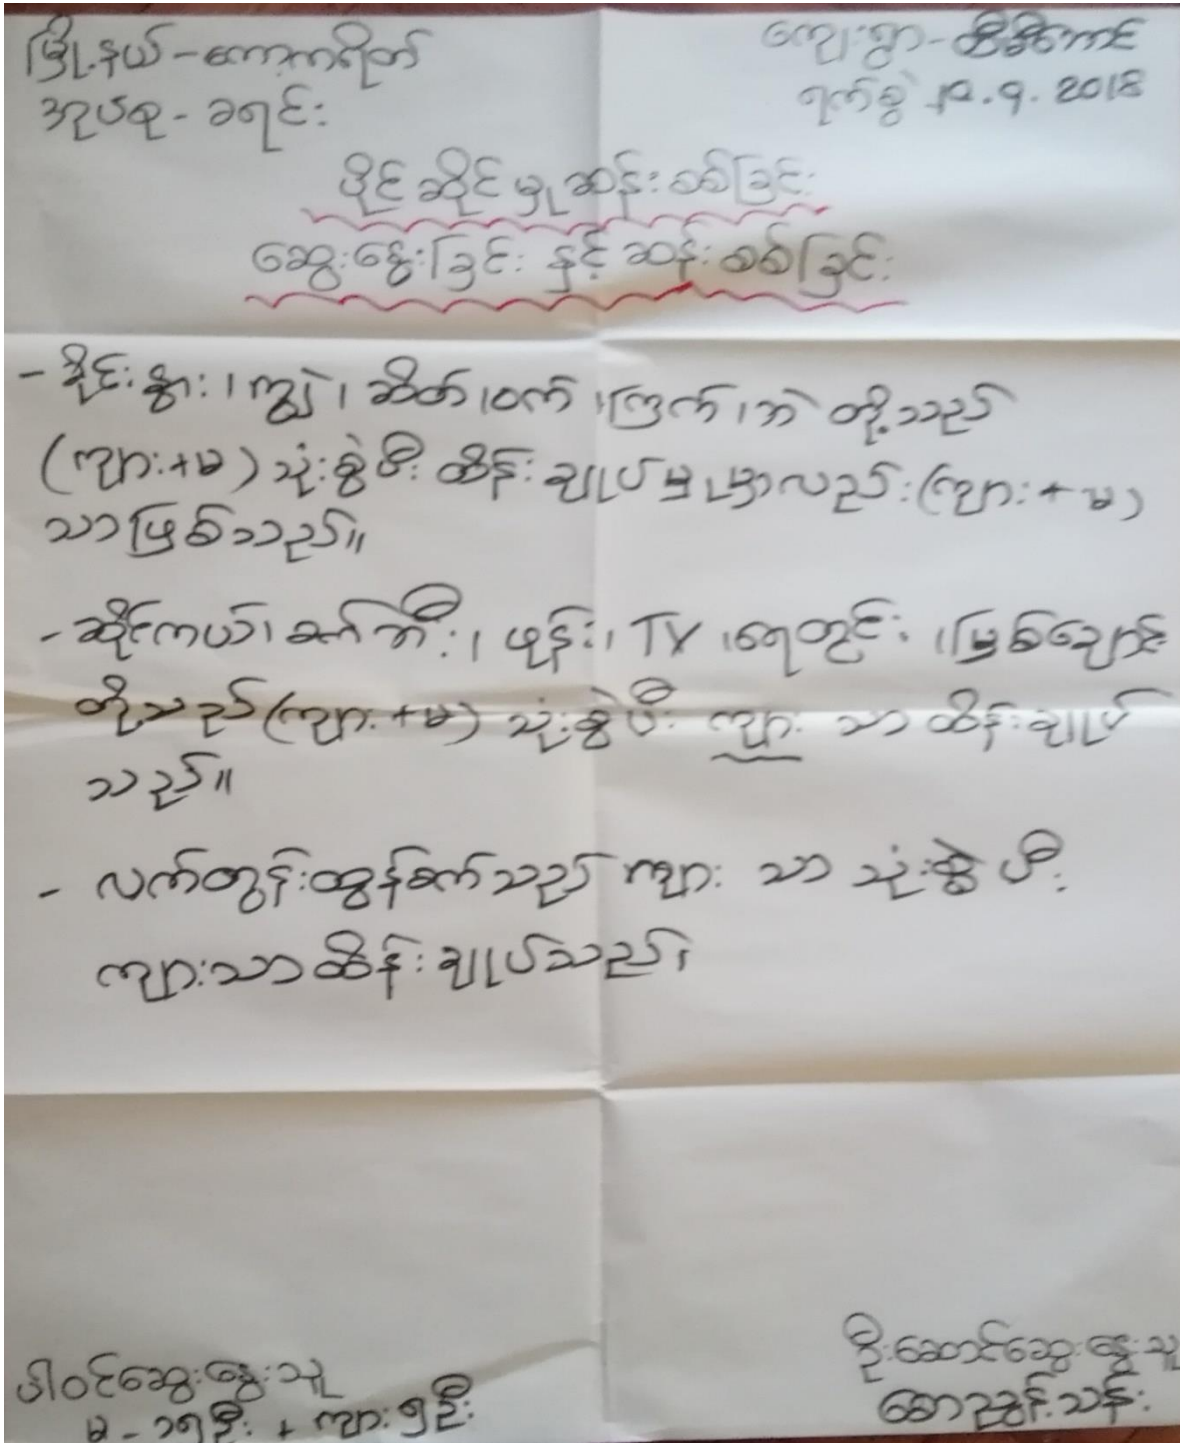 မြို့နယ် - ကော့ကရိတ်
ကျေးရွာ -
အုပ်စု - ခရင်း
ရက်စွဲ 2018
ပိုင်ဆိုင်မှုဆန်းစစ်ခြင်း
ဆွေးနွေးခြင်း နှင့် ဆန်းစစ်ခြင်း
- နွား၊ ကျွဲ၊ ဆိတ်၊ ဝက်၊ ကြက်၊ ဘဲ တို့သည်
(ကျား+မ) သုံးစွဲပီး ထိန်းချုပ်မှုမှာလည်း (ကျား+မ)
သာဖြစ်သည်။
- ဆိုင်ကယ်၊ စက်ဘီး၊ ဖုန်း၊ TV ၊ရေတွင်း ၊မြစ်ချောင်း
တို့သည် (ကျား+မ) သုံးစွဲပီး ကျား သာ ထိန်းချုပ်
သည်။
- လက်တွန်းထွန်စက်သည် ကျား သာ သုံးစွဲပီး
ကျားသာထိန်းချုပ်သည်၊
ပါဝင်ဆွေးနွေးသူ
ဦးဆောင်ဆွေးနွေးသူ
မ - ဦး + ကျား ၅ဦး